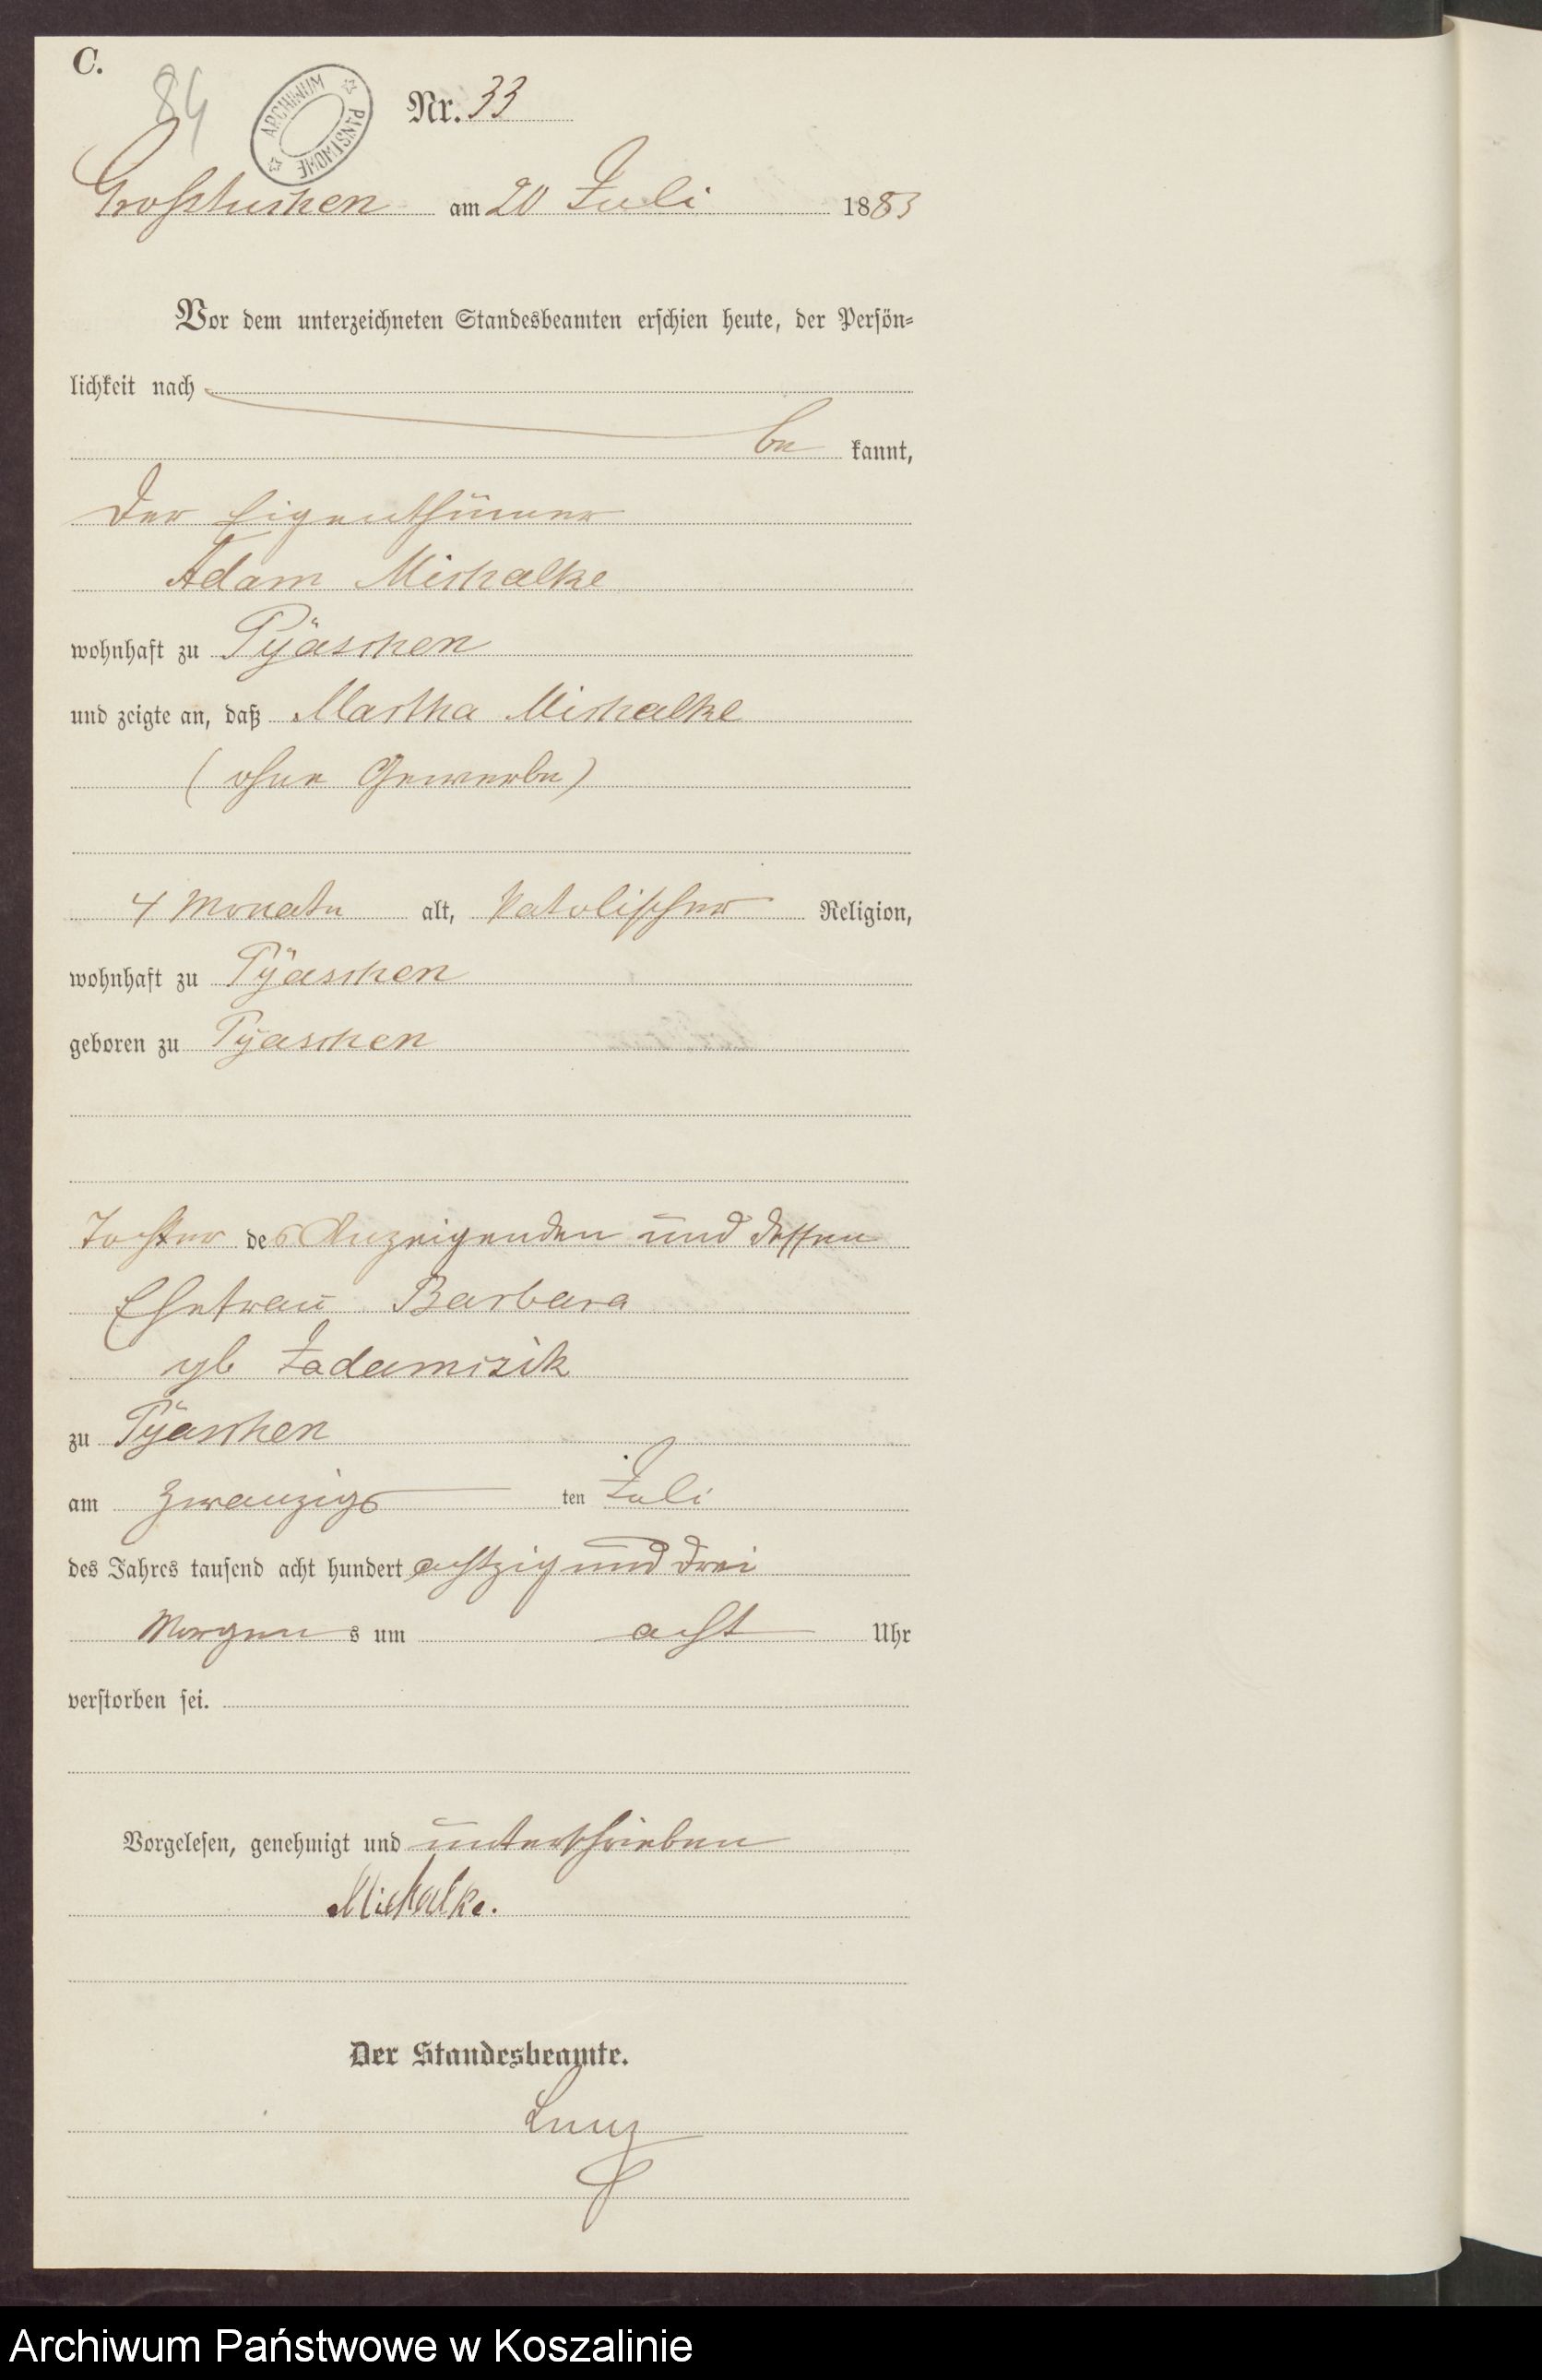 C.
84
ARCHIWUM PAŃSTWOWE
Nr. 33
Grostuchen am 20 Juli 1883
Vor dem unterzeichneten Standesbeamten erschien heute, der Persön-
lichkeit nach
be kannt,
der Eigenthümer
Adam Michalke
wohnhaft zu Pÿaschen
und zeigte an, daß Martha Michalke
(ohne Gewerbe)
4 Monate alt, katolischer Religion,
wohnhaft zu Pÿaschen
geboren zu Pÿaschen
Tochter des Anzeigenden und dessen
Ehefrau Barbara
gb Jadamczik
zu Pÿaschen
am zwanzigs ten Juli
des Jahres tausend acht hundert achtzig und drei
Morgen s um acht Uhr
verstorben sei.
Vorgelesen, genehmigt und unterschrieben
Michalke.
Der Standesbeamte.
Archiwum Państwowe w Koszalinie